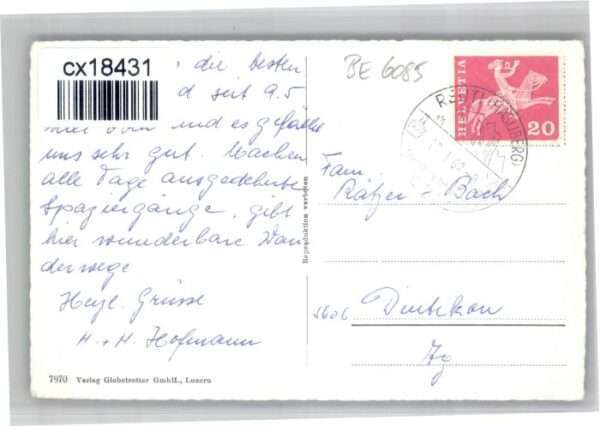 cx18431
die besten
seit 9.5
hier oben und es gefällt
uns sehr gut. Machen
alle Tage ausgedehnte
Spaziergänge, gibt
hier wunderbare Wan
derwege
Herzl. Grüsse
H. + H. Hofmann
7970 Verlag Globetrotter GmbH., Luzern
Reproduktion verboten
BE 6085
HELVETIA
20
Fam.
Rätzer - Bach
5606 Dintikon
Ag